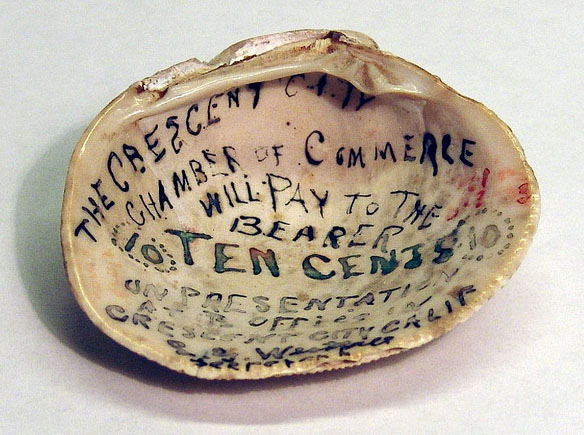 THE CRESCENT CITY
CHAMBER OF COMMERCE
WILL PAY TO THE
BEARER
10 TEN CENTS 10
ON PRESENTATION
AT ITS OFFICE IN
CRESCENT CITY CALIF
Secretary